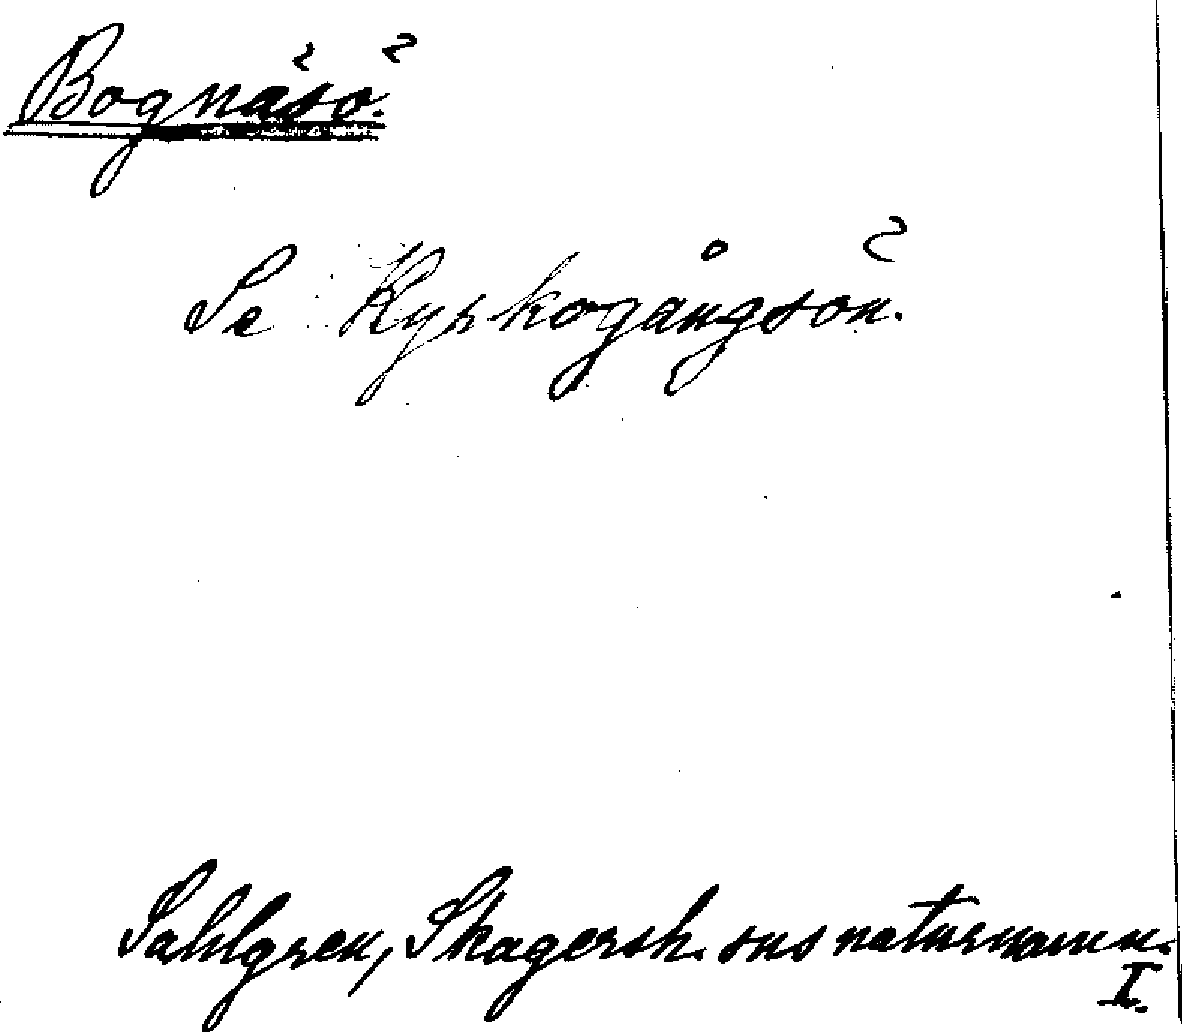 Bognäsö.
Se Kyrkogångsön.
Sahlgren, Skagersh. sns naturnamn.
I.